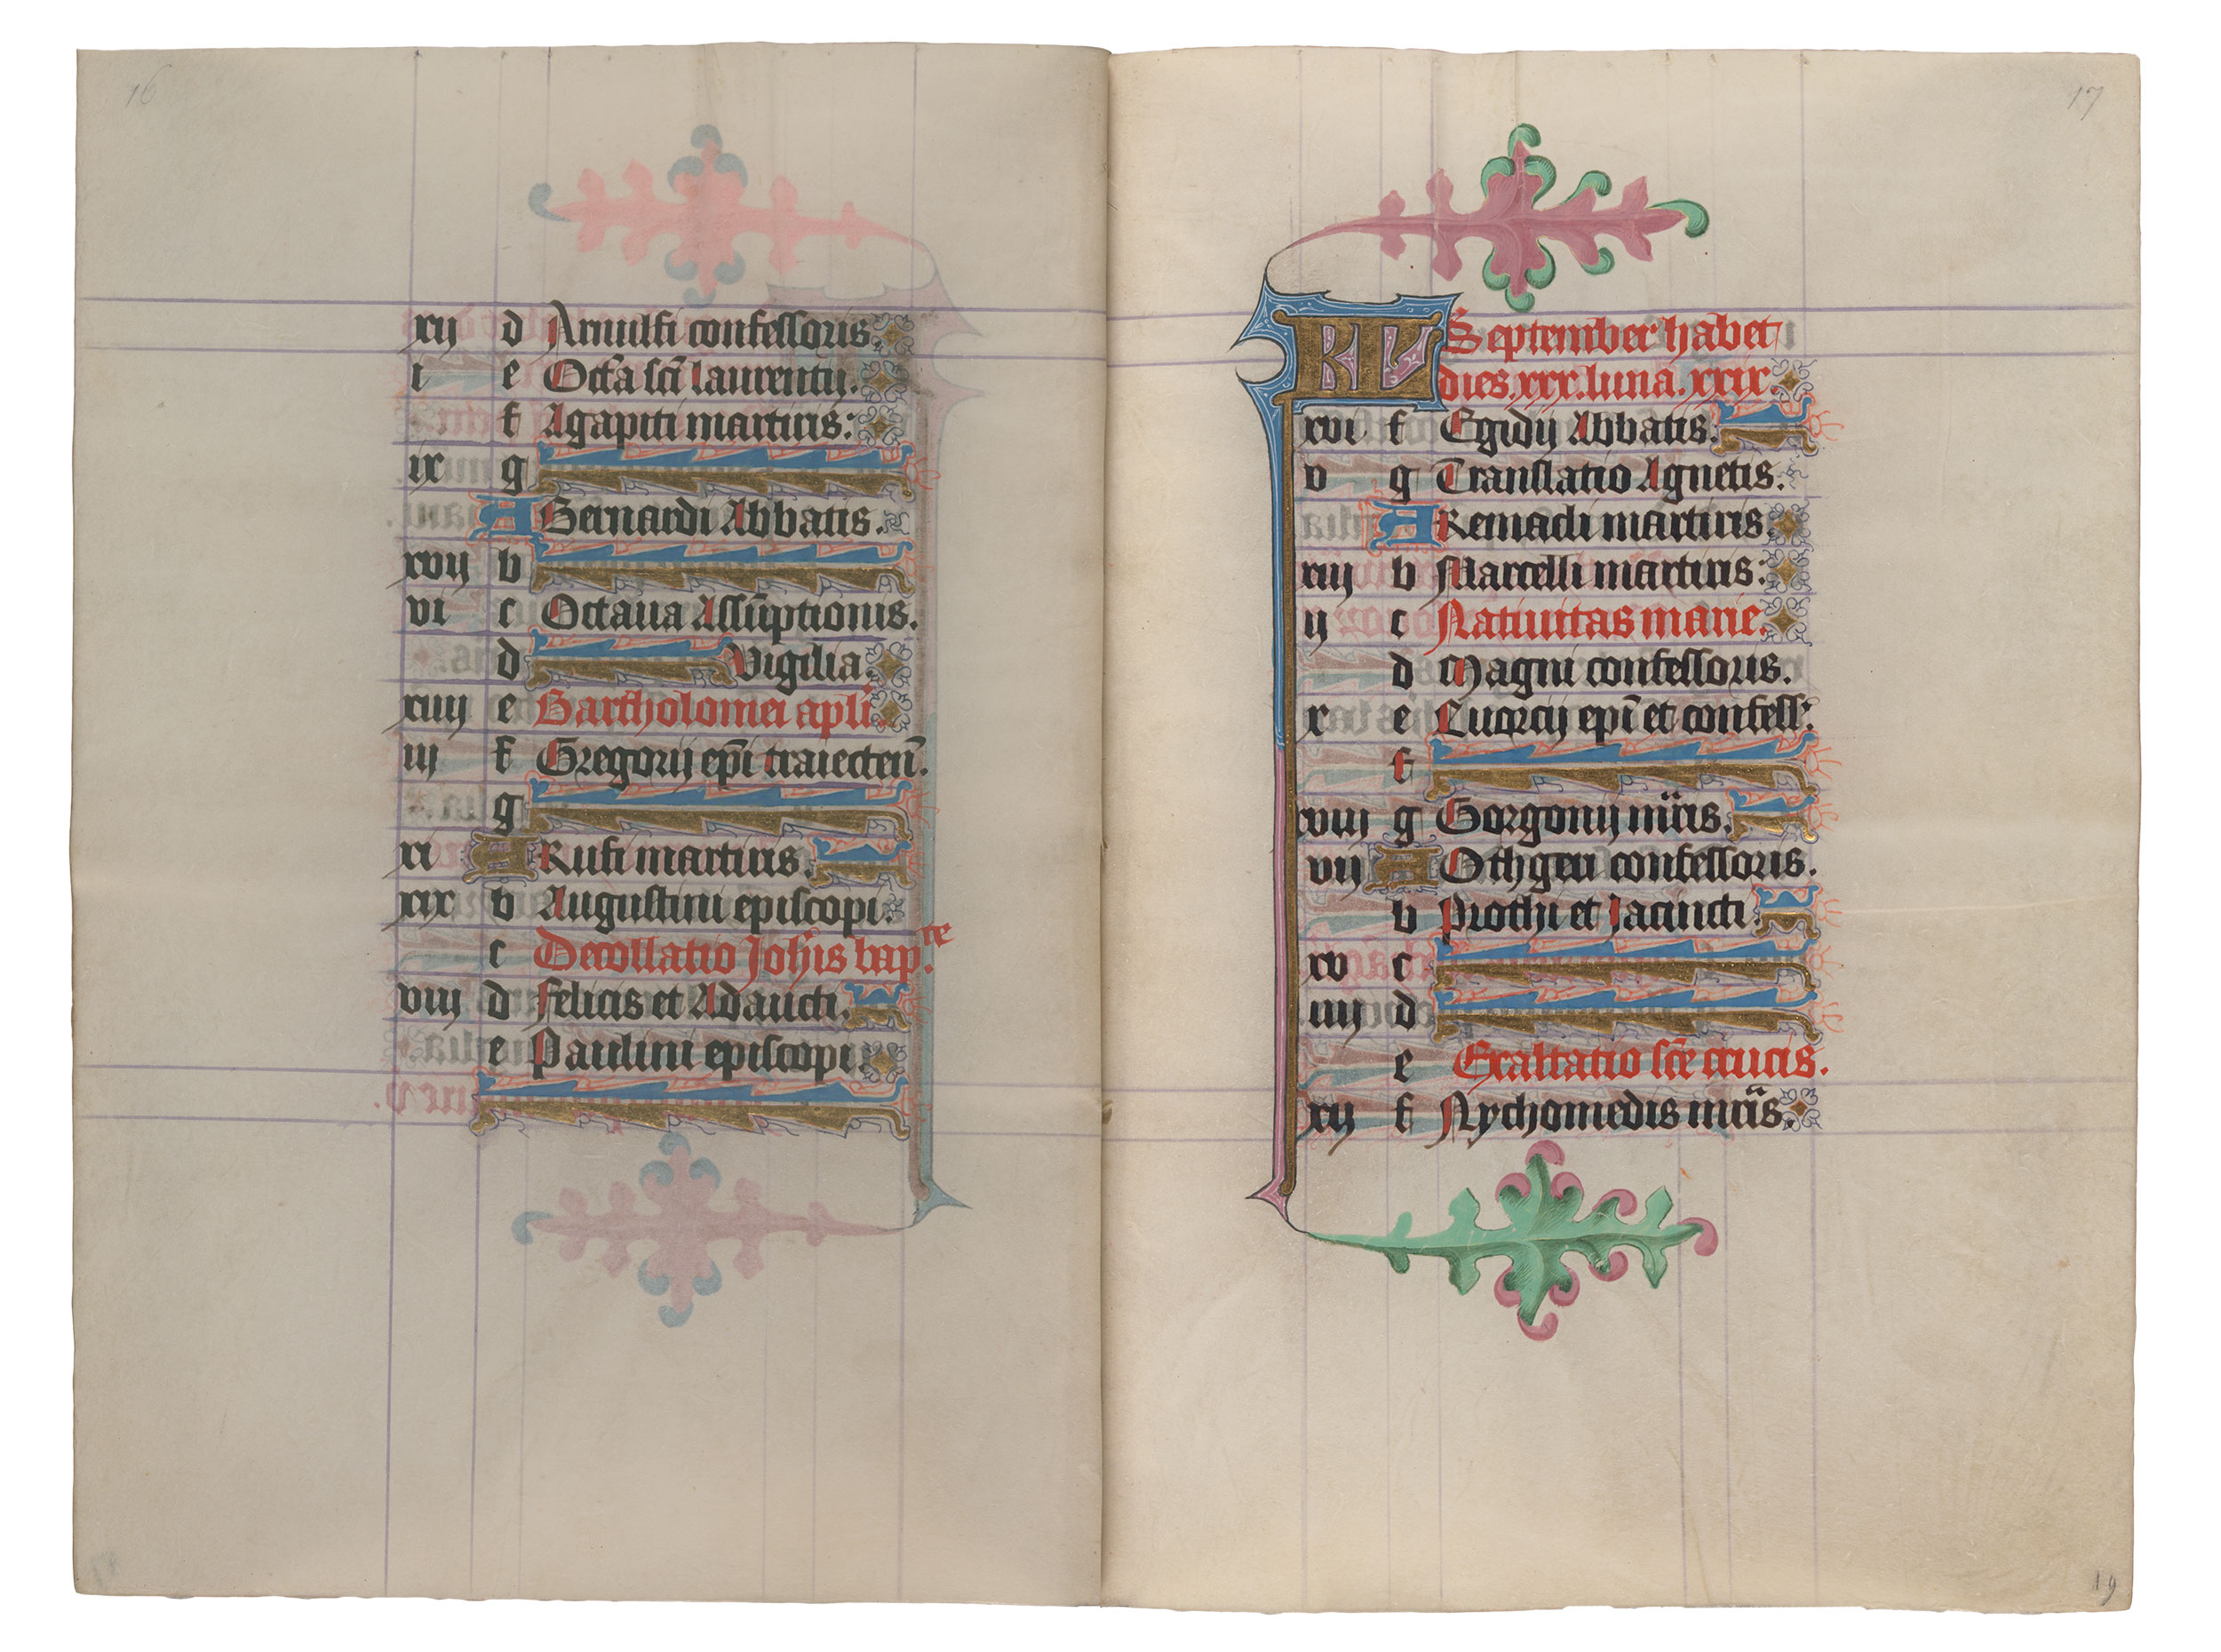 16
xij d Arnulfi confessoris.
i e Octa sci laurentij.
f Agapiti martiris:
ix g
A Bernardi Abbatis.
xvij b
vi c Octaua Assūptionis.
d Vigilia.
xiiij e Bartholomei apli.
iij f Gregorij epi traiecteñ.
g
xi A Rufi martiris.
xix b Augustini episcopi.
c Decollatio Johis bap.te
viij d felicis et Adaucti.
e Paulini episcopi.
17
KL September habet
dies.xxx.luna.xxix.
xvi f Egidij Abbatis.
v g Translatio Agnetis.
A Remacli martiris.
xiij b Marcelli martiris:
ij c Natiuitas marie.
d Magni confessoris.
x e Euorcij epi et confess:
f
xviij g Gorgonij mris.
vij A Othgeri confessoris.
b Prothi et Jacincti.
xv c
iiij d
e Exaltatio sce crucis.
xij f Nychomedis mris.
19